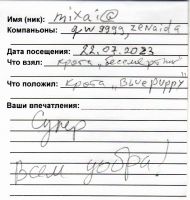 Имя (ник): mixa:@
Компаньоны: qw9999, zenaida
Дата посещения: 22.07.2023
Что взял: крота „бессмертни"
Что положил: крота „Bluepuppy"
Ваши впечатления:
Супер
Всем добра!